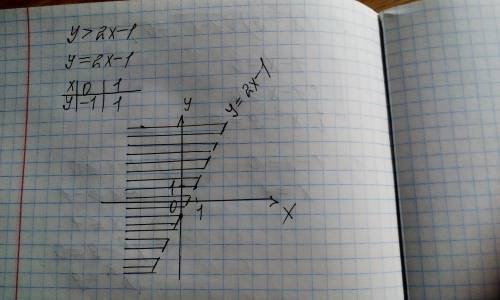 y>2x-1
y=2x-1
x 0 1
y -1 1
y
y=2x-1
1
0 1
x